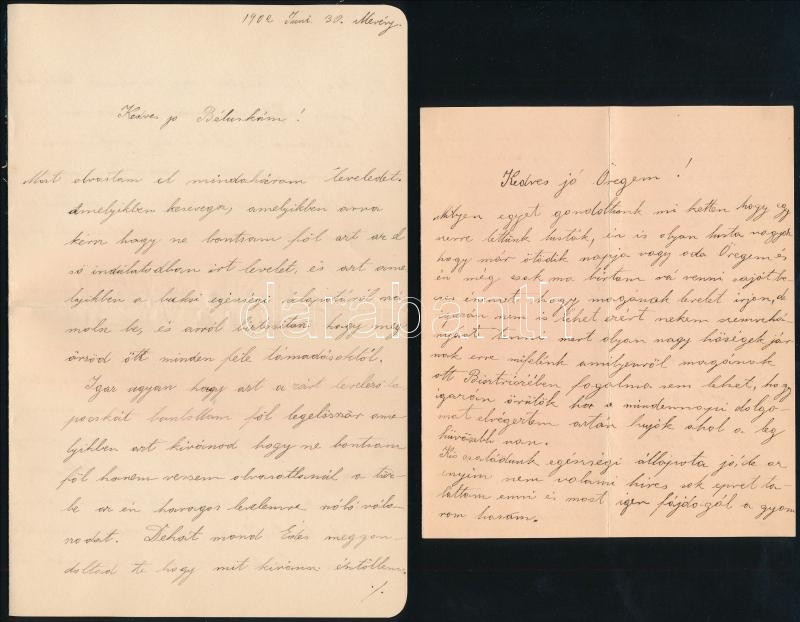 1902 Juni 30. Mevéry.
Kedves jó Béluskám!
Most olvastam el mindahárom leveledet.
Amelyikben kesereg, amelyikben arra
kérsz hogy ne bontsam föl azt az el
ső indulatodban irt levelet, és azt ame
lyikben a buksi egészségi állapotáról szá
molsz be, és arról biztositasz hogy meg
őrzöd őtt minden féle támadásoktól.
Igaz ugyan hogy azt a zárt levelező la
pocskát bontottam föl legelőször ame
lyikben azt kivánod hogy ne bontsam
föl hanem vessem olvasatlanúl a tüz
be az én haragos levelemre való vála
szodat. Dehát mond Édes meggon
doltad te hogy mit kivánsz én tőllem.
./.
Kedves jó Öregem!
Milyen egyet gondoltunk mi ketten hogy egy
szerre lettünk lusták, én is olyan lusta vagyok
hogy már ötödik napja vagy oda Öregem és
én még csak ma birtam rá venni saját be
cses énmet, hogy magának levelet irjon, de
igazán nem is lehet ezért nekem szemrehá
nyást tenni mert olyan nagy hőségek jár
nak erre mifelénk amilyenről magának
ott Bisztriczében fogalma sem lehet, hogy
igazán örülök ha a mindennapi dolgo
mat elvégeztem aztán bujók ahol a leg
hüvösebb van.
Kis családunk egészségi állapota jó de az
enyim nem valami hires sok epret ta
láltam enni és most igen fájdogál a gyom
rom hasam.
darabanth